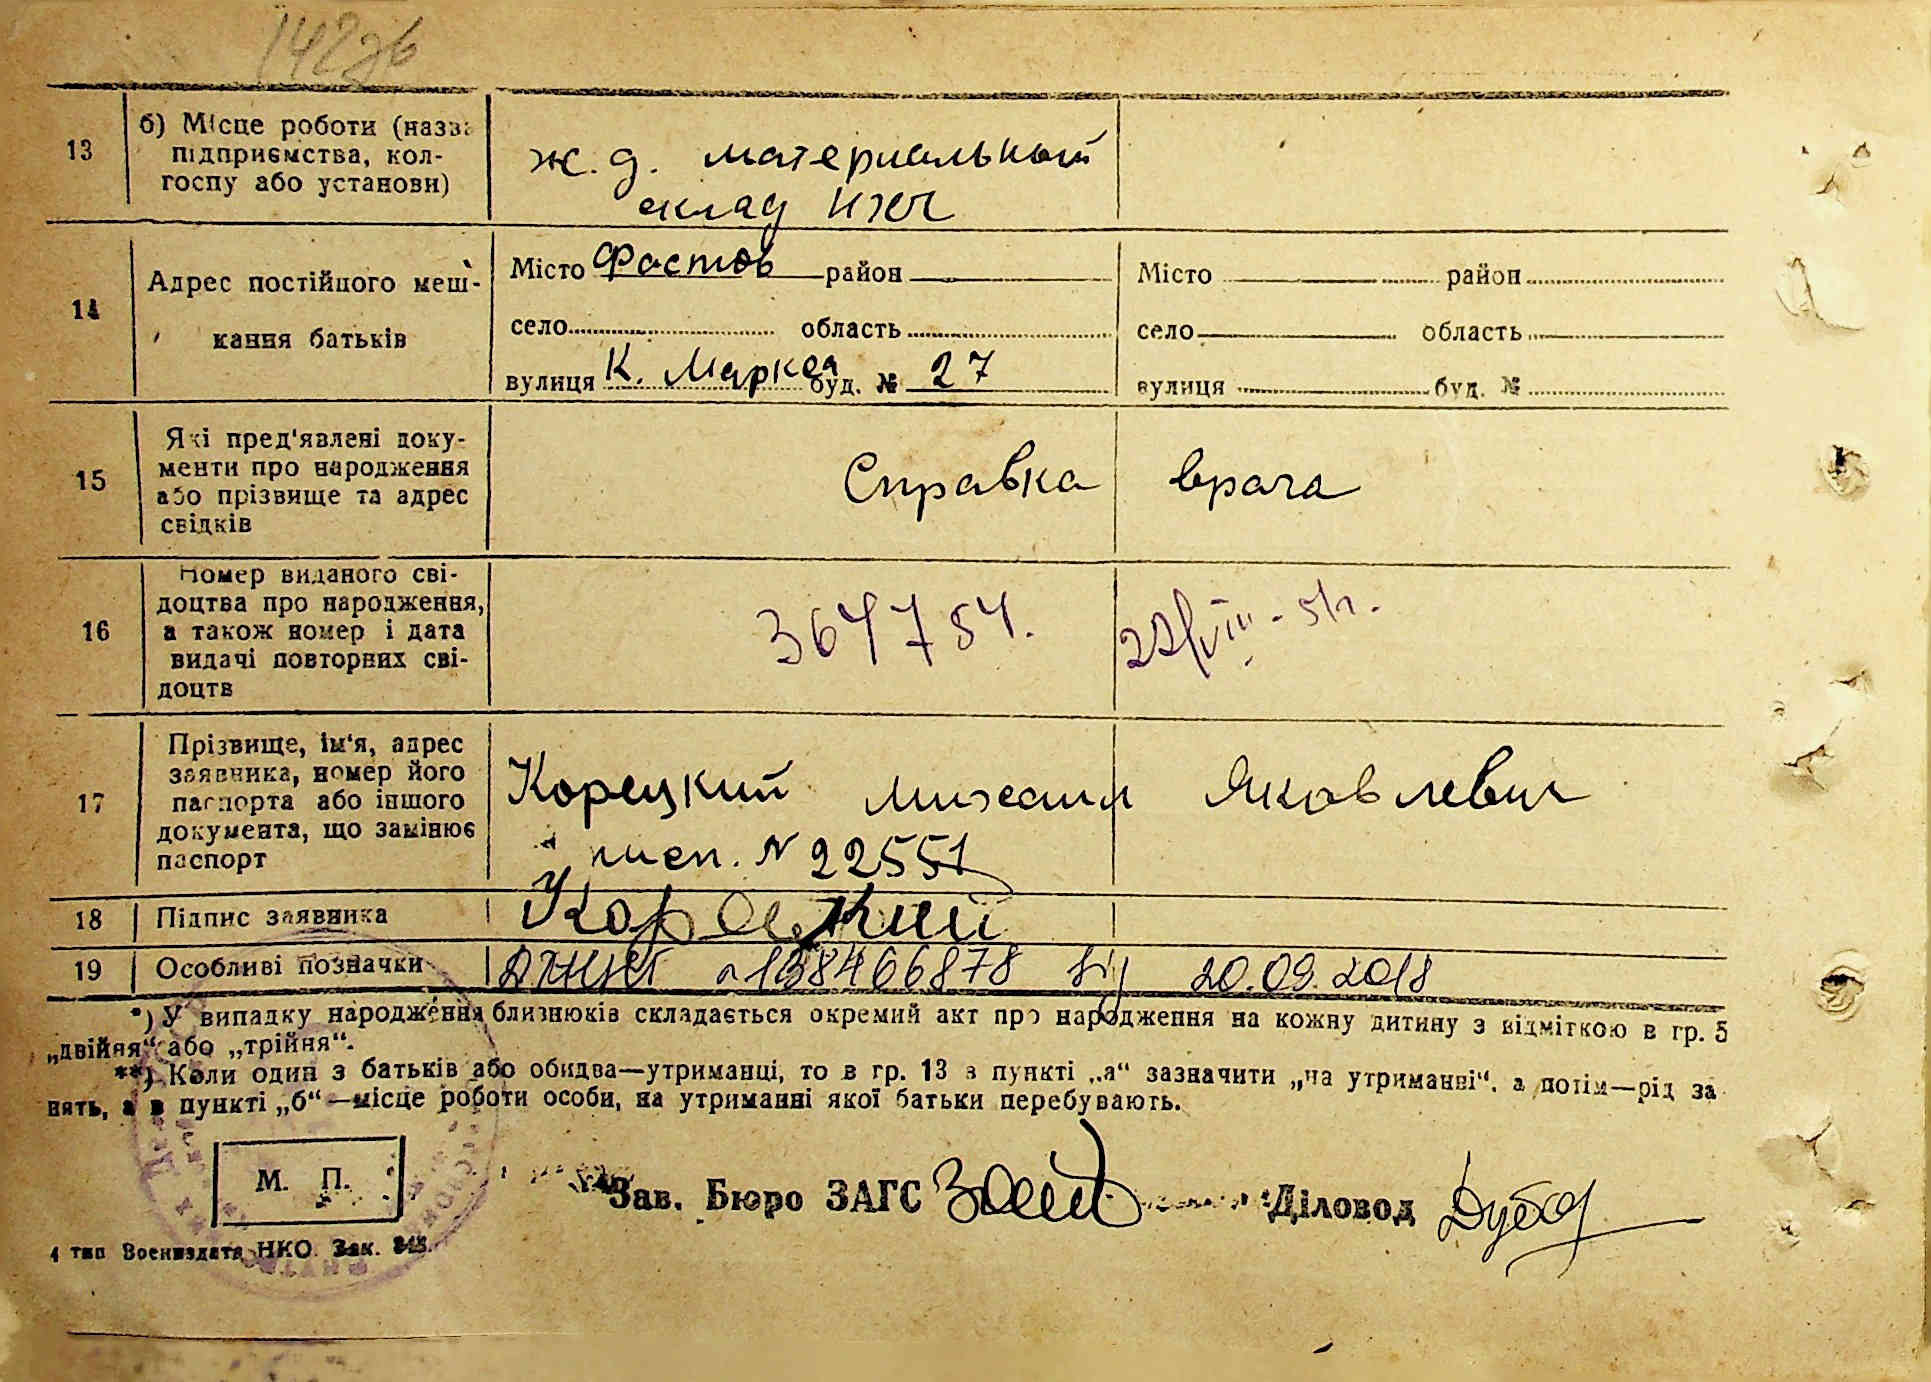 142 зв
13
б) Місце роботи (назва
підприємства, кол-
госпу або установи)
ж. д. материальный
склад
14
Адрес постійного меш-
кання батьків
Місто Фастов район
село область
вулиця К. Маркса буд. № 27
Місто район
село область
вулиця буд. №
15
Які пред'явлені доку-
менти про народження
або прізвище та адрес
свідків
Справка врача
16
Номер виданого сві-
доцтва про народження,
а також номер і дата
видачі повторних сві-
доцтв
364754. 22/VIII-51г.
17
Прізвище, ім'я, адрес
заявника, номер його
паспорта або іншого
документа, що замінює
паспорт
Корецкий Михаил Яковлевич
N 22551
18 Підпис заявника
Корецкий
19 Особливі позначки
138466878 від 20.09.2018
*) У випадку народження близнюків складається окремий акт про народження на кожну дитину з відміткою в гр. 5
„двійня“ або „трійня“.
**) Коли один з батьків або обидва—утриманці, то в гр. 13 в пункті „а“ зазначити „на утриманні“, а потім—рід за
нять, а в пункті „б“—місце роботи особи, на утриманні якої батьки перебувають.
М. П.
Зав. Бюро ЗАГС
Діловод
4 тип Воениздата НКО. Зак.